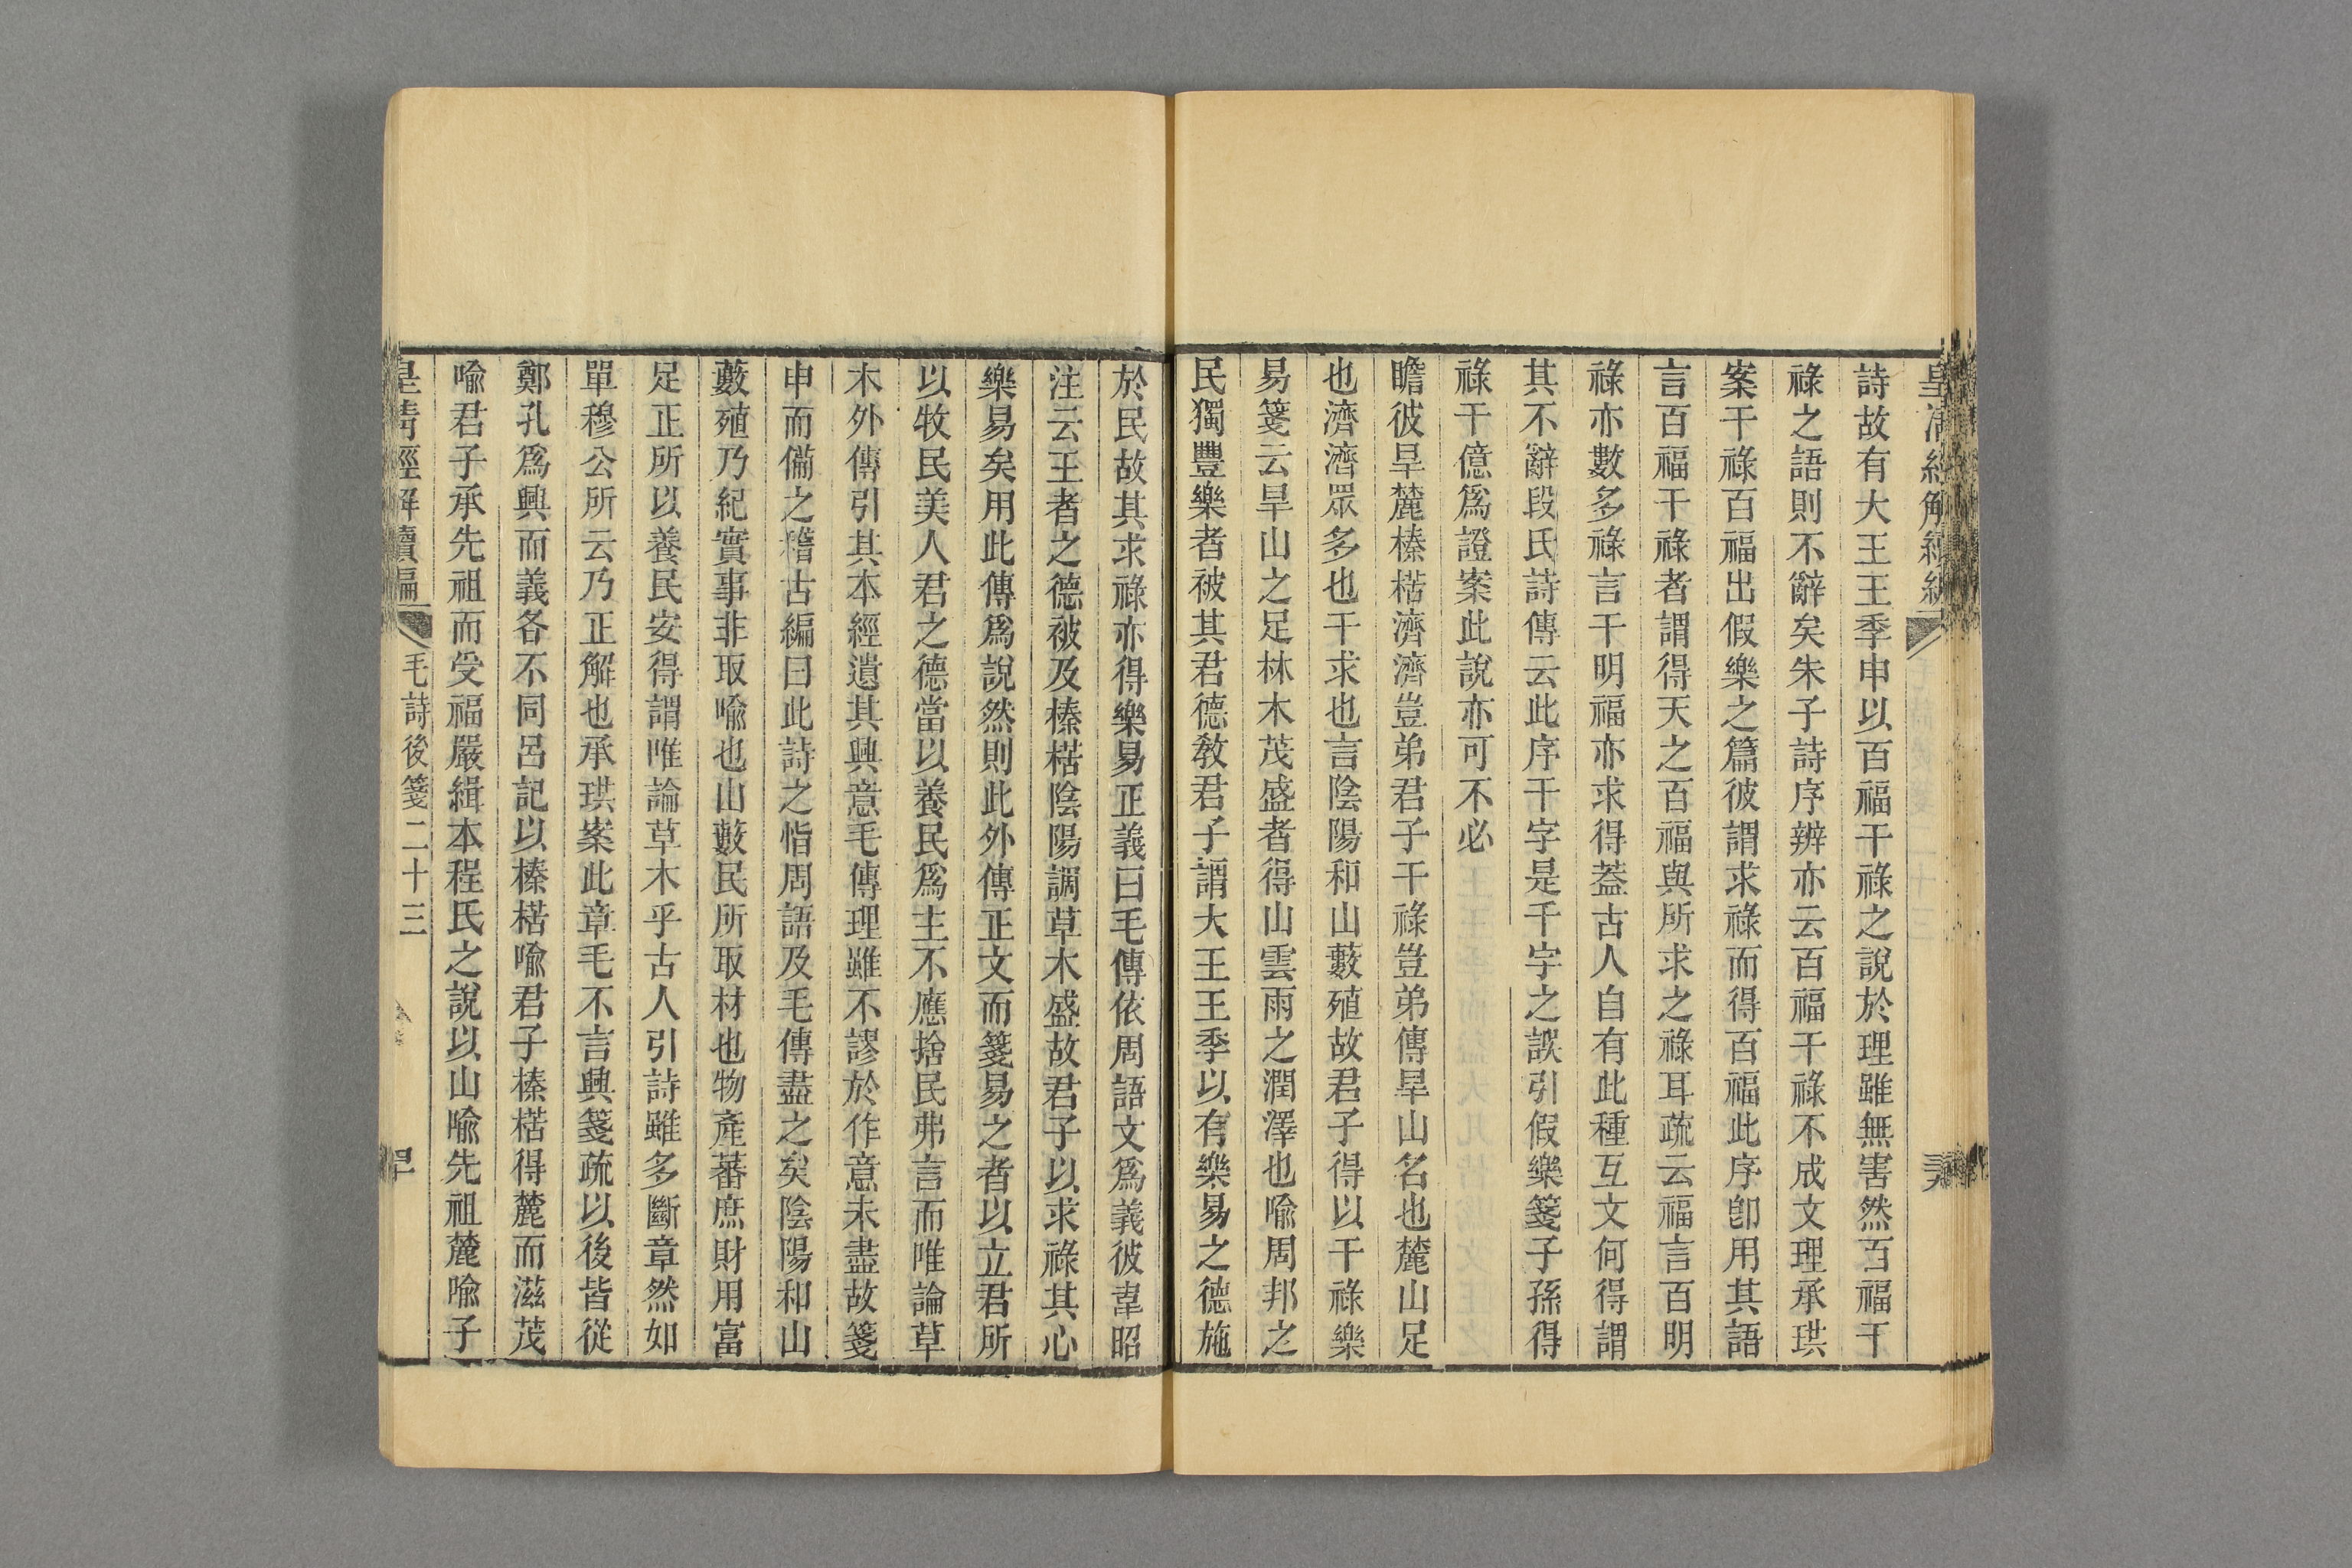 皇清經解續編
詩故有大王王季申以百福干祿之說於理雖無害然百福干
祿之語則不辭矣朱子詩序辨亦云百福干祿不成文理承珙
案干祿百福出假樂之篇彼謂求祿而得百福此序卽用其語
言百福干祿者謂得天之百福與所求之祿耳疏云福言百明
祿亦數多祿言干明福亦求得蓋古人自有此種互文何得謂
其不辭段氏詩傳云此序干字是千字之誤引假樂箋子孫得
祿千億爲證案此說亦可不必
瞻彼旱麓榛楛濟濟豈弟君子干祿豈弟傳旱山名也麓山足
也濟濟眾多也干求也言陰陽和山藪殖故君子得以干祿樂
易箋云旱山之足林木茂盛者得山雲雨之潤澤也喩周邦之
民獨豐樂者被其君德敎君子謂大王王季以有樂易之德施
於民故其求祿亦得樂易正義曰毛傳依周語文爲義彼韋昭
注云王者之德被及榛楛陰陽調草木盛故君子以求祿其心
樂易矣用此傳爲說然則此外傳正文而箋易之者以立君所
以牧民美人君之德當以養民爲主不應捨民弗言而唯論草
木外傳引其本經遺其興意毛傳理雖不謬於作意未盡故箋
申而備之稽古編曰此詩之恉周語及毛傳盡之矣陰陽和山
藪殖乃紀實事非取喩也山藪民所取材也物產蕃庶財用富
足正所以養民安得謂唯論草木乎古人引詩雖多斷章然如
單穆公所云乃正解也承珙案此章毛不言興箋疏以後皆從
鄭孔爲興而義各不同呂記以榛楛喩君子榛楛得麓而滋茂
喩君子承先祖而受福嚴緝本程氏之說以山喩先祖麓喩子
皇清經解續編 毛詩後箋二十三